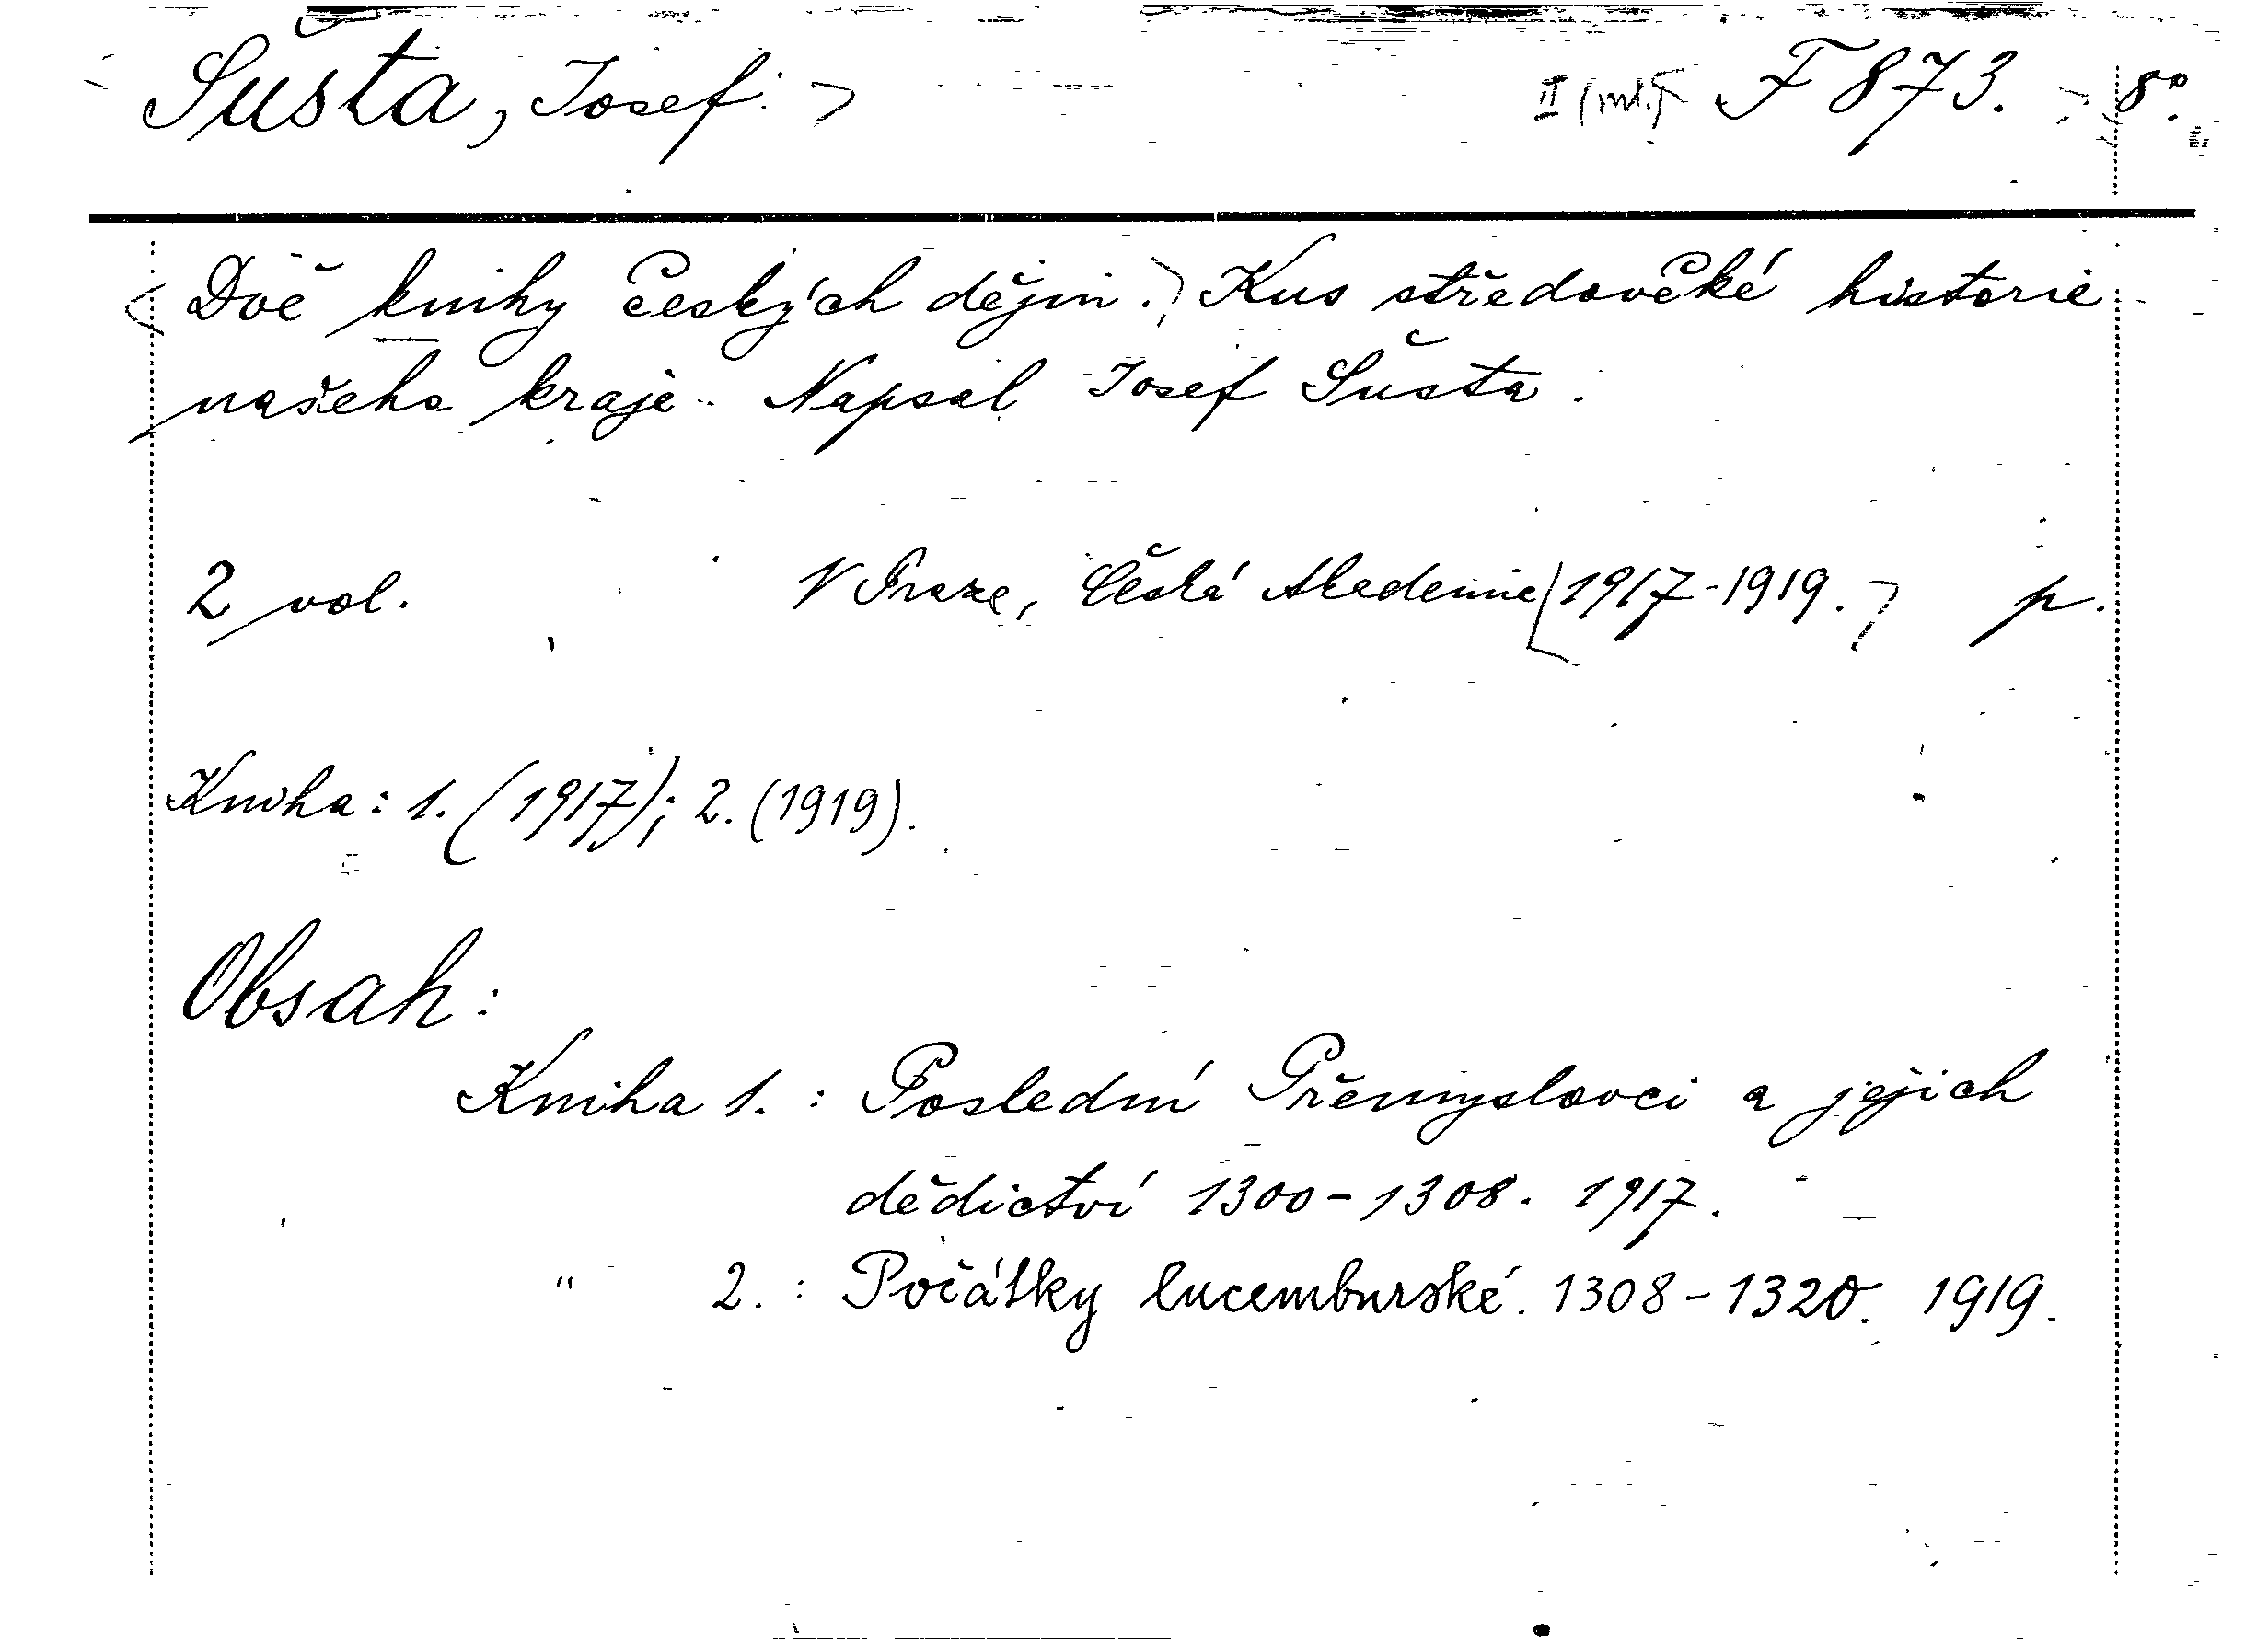 Šusta, Josef. II (ml.) F 873. 8°.
Dvě knihy českých dějin. Kus středověké historie
našeho kraje. Napsal Josef Šusta.
2 vol. V Praze, Česká Akademie [1917-1919.] p.
Kniha: 1. (1917); 2. (1919).
Obsah:
Kniha 1. : Poslední Přemyslovci a jejich
dědictví 1300-1308. 1917.
" 2. : Počátky lucemburské. 1308-1320. 1919.